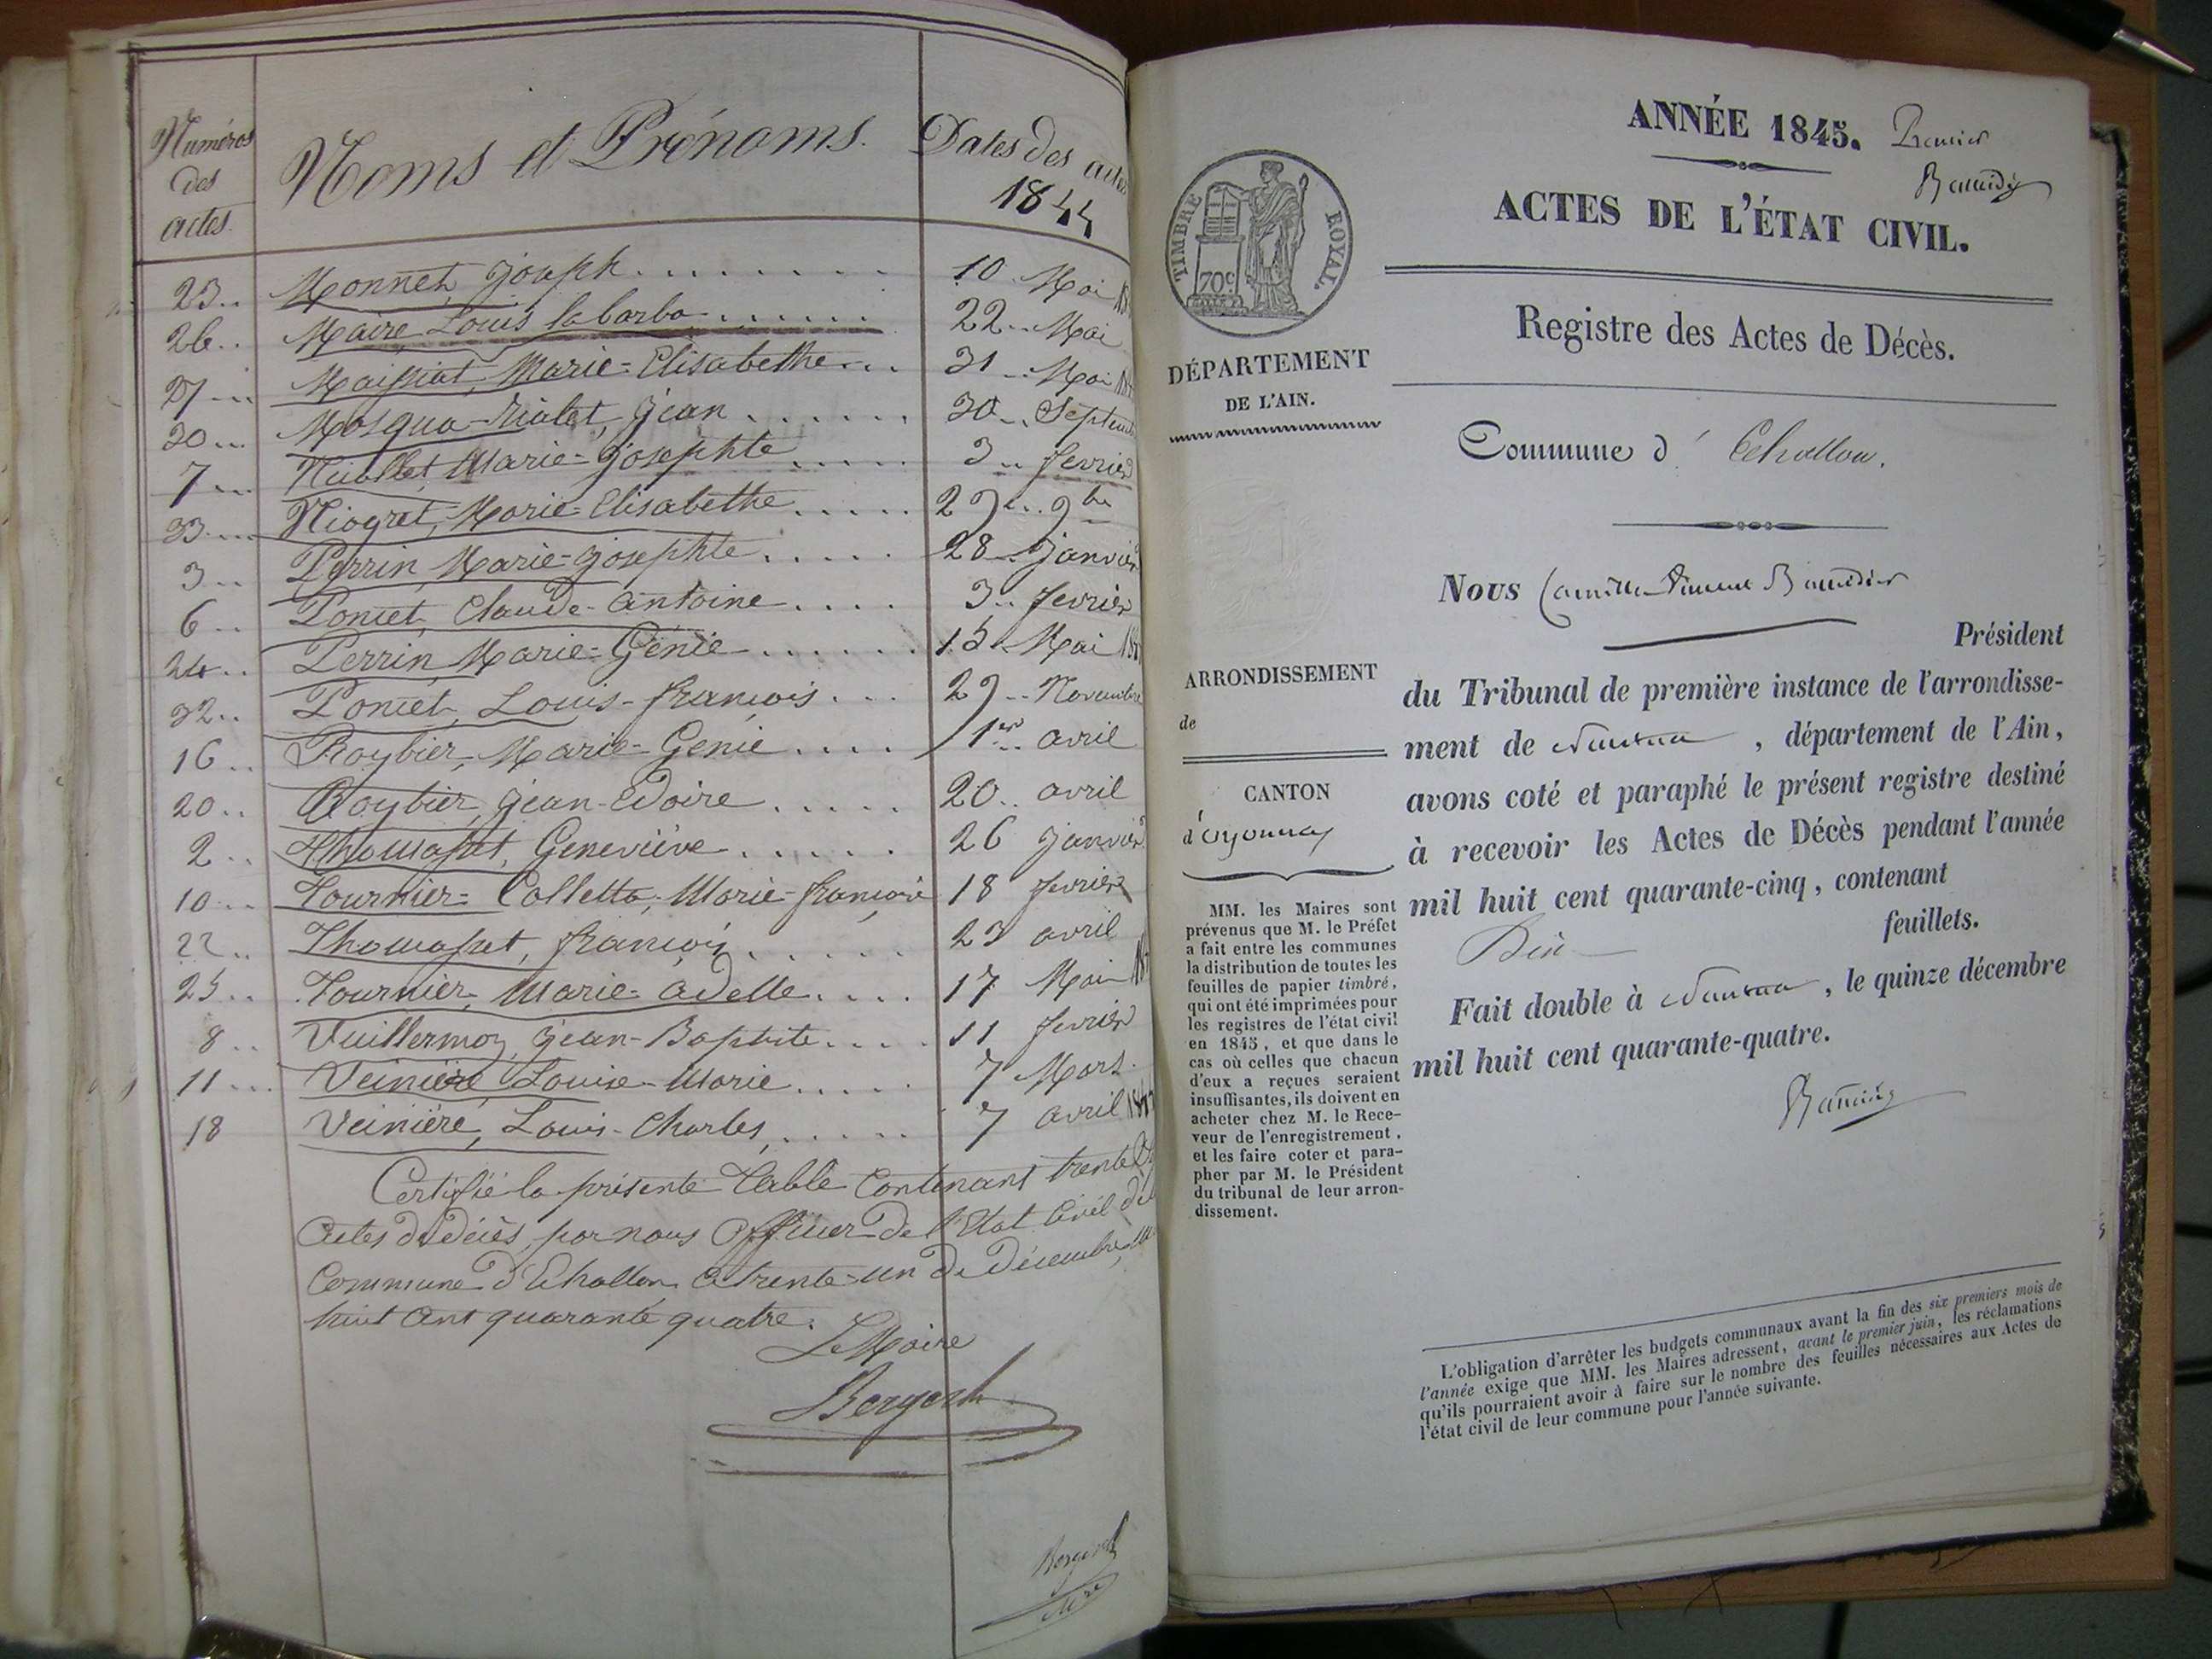 Numéros des actes.
Noms et Prénoms.
Dates des actes 1844
23.. Monnet, Joseph ........ 10 Mai
26.. Maire, Louis la barbe ...... 22.. Mai
27... Maissiat, Marie=Elisabethe... 31.. Mai
30... Jean ...... 30.. Septemb
7... Marie=Josephte ..... 3.. fevrier
33.... Niogret, Marie=Elisabethe ..... 29... 9bre
3.. Perrin, Marie=Josephte ..... 28.. Janvier
6.. Poncet, Claude-Antoine .... 3.. fevrier
24.. Perrin, Marie=Génie ...... 15 Mai
32.. Poncet, Louis-françois ... 29.. Novembre
16.. Roybier, Marie=Genie .... 1er.. avril
20.. Roybier, Jean-Edoire ..... 20.. avril
2.. Thomasset, Geneviève ..... 26 Janvier
10... Tournier=Colletta, Marie-françoise 18 fevrier
22.. Thomasset, françois ...... 23 avril
25.. Tournier, Marie=Adelle .... 17 Mai
8.. Vuillermoz, Jean-Baptiste .... 11 fevrier
11... Veinière, Louise-Marie ..... 7 Mars.
18 Veinière, Louis-Charles, ..... 7 avril
Certifié la présente Table Contenant trente
Actes de Décès, par nous Officier de l'Etat Civil de
Commune d'Echallon ce trente-un de Décembre,
huit Cent quarante quatre.
Le Maire
ANNÉE 1845. Premier
ACTES DE L'ÉTAT CIVIL.
TIMBRE ROYAL.
70c
Registre des Actes de Décès.
DÉPARTEMENT
DE L'AIN.
Commune d' Echallon.
Nous Camille Vincent
Président
du Tribunal de première instance de l'arrondisse-
ment de Nantua , département de l'Ain,
avons coté et paraphé le présent registre destiné
à recevoir les Actes de Décès pendant l'année
mil huit cent quarante-cinq, contenant
Dix feuillets.
Fait double à Nantua , le quinze décembre
mil huit cent quarante-quatre.
ARRONDISSEMENT
de
CANTON
d'Oyonnax
MM. les Maires sont
prévenus que M. le Préfet
a fait entre les communes
la distribution de toutes les
feuilles de papier timbré,
qui ont été imprimées pour
les registres de l'état civil
en 1845, et que dans le
cas où celles que chacun
d'eux a reçues seraient
insuffisantes, ils doivent en
acheter chez M. le Rece-
veur de l'enregistrement,
et les faire coter et para-
pher par M. le Président
du tribunal de leur arron-
dissement.
L'obligation d'arrêter les budgets communaux avant la fin des six premiers mois de
l'année exige que MM. les Maires adressent, avant le premier juin, les réclamations
qu'ils pourraient avoir à faire sur le nombre des feuilles nécessaires aux Actes de
l'état civil de leur commune pour l'année suivante.